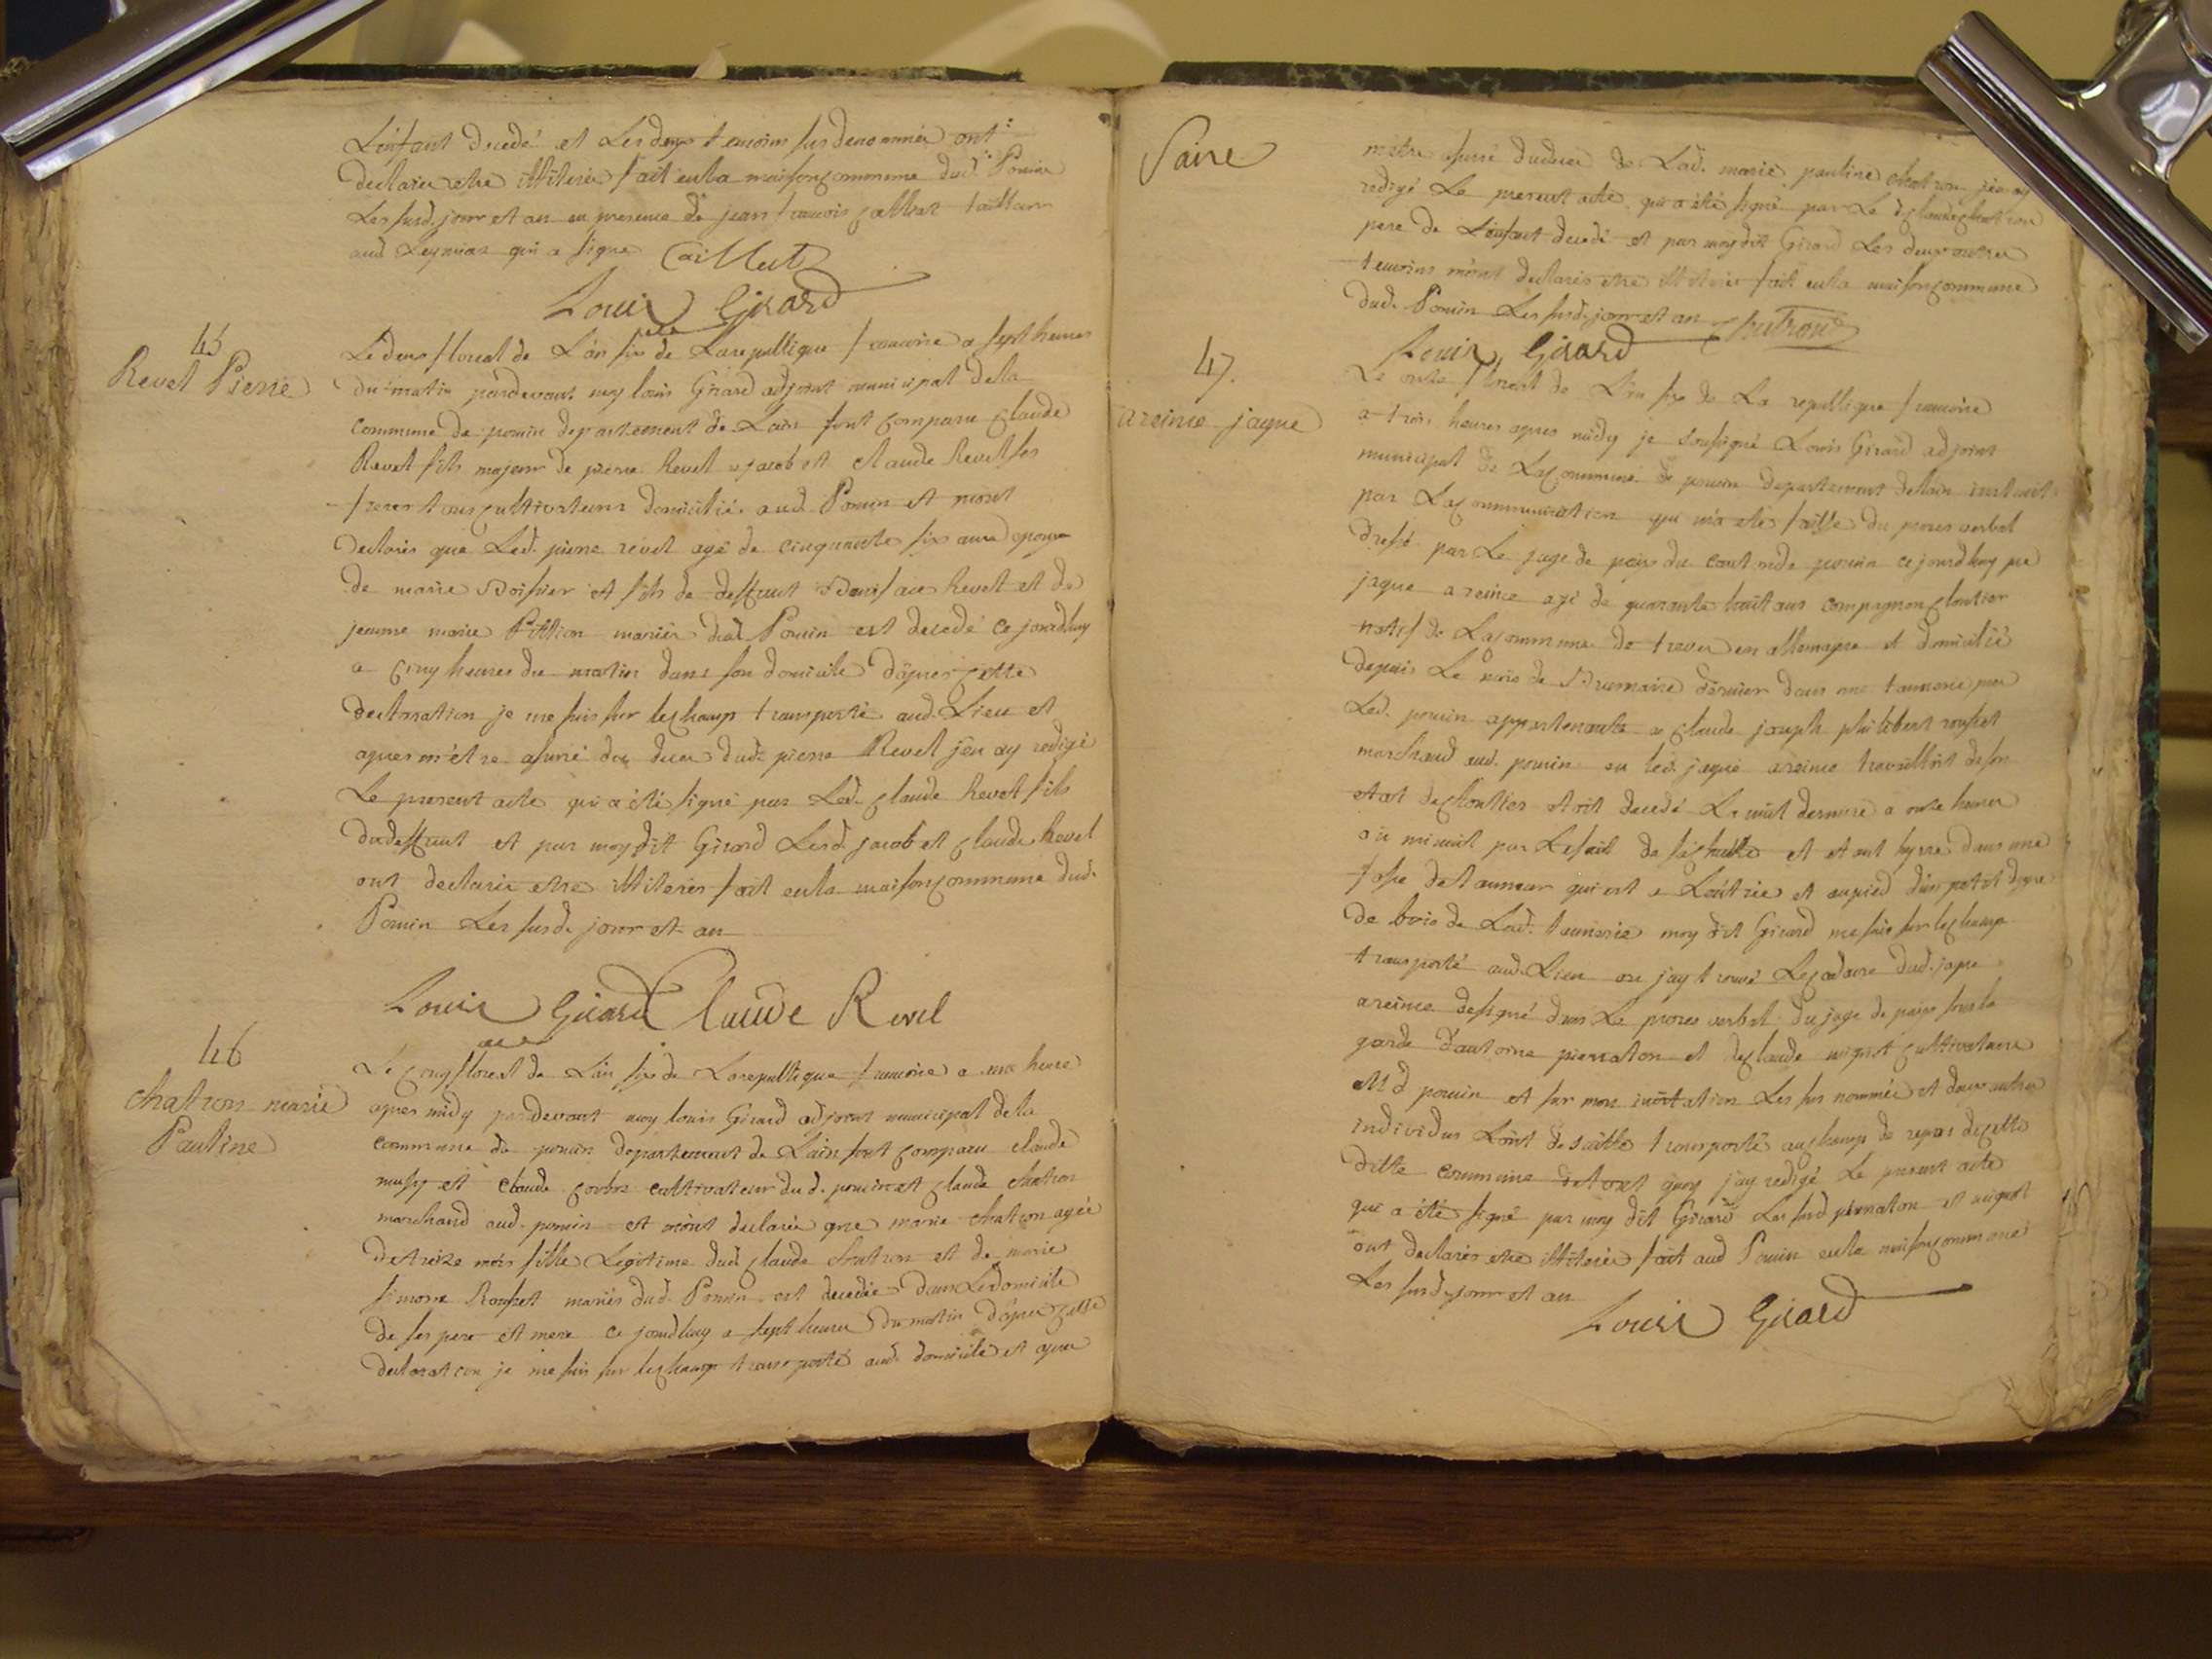 L'enfant decedé et Les deux temoins sus denommés ont
declarer etre illiterés fait en la maison commune dud. Poncin
Les susd. jour et an en presence de jean francois caillat tailleur
aud Leyssard qui a signe Caillat
Louis Girard
45
Revel Pierre
Le deux floreal de L'an six de La republique francoise a sept heures
du matin pardevant moy louis Girard adjoint municipal de la
commune de poncin departement de Lain sont comparu claude
Revel fils majeur de pierre Revel jacob et claude Revel ses
freres tous cultivateurs domiciliés aud. Poncin et mont
declarés que Led. pierre revel agé de cinquante six ans epoux
de marie et fils de deffunt Revel et de
jeanne marie mariés dud. Poncin est decedé ce jourdhuy
a cinq heures du matin dans son domicile d'apres cette
declaration je me suis sur le champ transporté aud. Lieu et
apres m'être assuré du deces dud. pierre Revel j'en ay redigé
Le present acte qui a été signé par Led. claude Revel fils
du deffunt et par moy dit Girard Lesd. jacob et claude Revel
ont declarés etre illiterés fait en la maison commune dud.
Poncin Les susd. jour et an
Louis Girard Claude Revel
46
chatron marie
Pauline
Le cinq floreal de L'an six de La republique francoise a une heure
apres midy pardevant moy louis Girard adjoint municipal de la
commune de poncin departement de Lain sont comparu claude
mussy et claude cultivateur dud. poncin et claude chatron
marchand aud. poncin et m'ont declarés que marie chatron agée
de treize mois fille Legitime dud. claude chatron et de marie
simone Rousset mariés dud. Poncin est decedée dans Le domicile
de ses pere et mere ce jourdhuy a sept heures du matin d'apres cette
declaration je me suis sur le champ transporté aud. domicile et apres
Paire
m'etre assuré du deces de Lad. marie pauline chatron j'en ay
redigé Le present acte qui a été signé par Le d. claude chatron
pere de L'enfant decedé et par moy dit Girard Les deux autres
temoins m'ont declarés etre illiterés fait en la maison commune
dud. Poncin Les susd. jour et an Chatron
Louis Girard
47.
areince jaque
Le onze floreal de L'an six de La republique francoise
a trois heures apres midy je soussigné Louis Girard adjoint
municipal de La commune de poncin departement de Lain instruit
par La communication qui m'a eté faitte du proces verbal
dressé par Le juge de paix du canton de poncin ce jourdhuy que
jaque areince agé de quarante huit ans compagnon cloutier
natif de La commune de treves en allemagne et domicilié
depuis Le mois de Brumaire dernier dans une tannerie
Led. poncin appartenante a claude joseph philibert rousset
marchand aud. poncin ou led. jaque areince travailloit de son
etat de cloutier etoit decedé La nuit derniere a onze heures
ou minuit par Le fait de sa chutte et etant dans une
fosse de tanneur qui est a L'entrée et au pied d'un petit degré
de bois de Lad. tannerie moy dit Girard me suis sur le champ
transporté aud. Lieu ou j'ay trouvé Le cadavre dud. jaque
areince designé dans Le proces verbal du juge de paix sous la
garde d'antoine pierraton et de claude cultivateurs
dud poncin et sur mon invitation Les sus nommés et deux autres
individus L'ont de suitte transporté au champ de repos de cette
ditte commune de tout quoy j'ay redigé Le present acte
qui a été signé par moy dit Girard Les susd pierraton et
ont declarés etre illiterés fait aud Poncin en la maison commune
Les susd. jour et an
Louis Girard